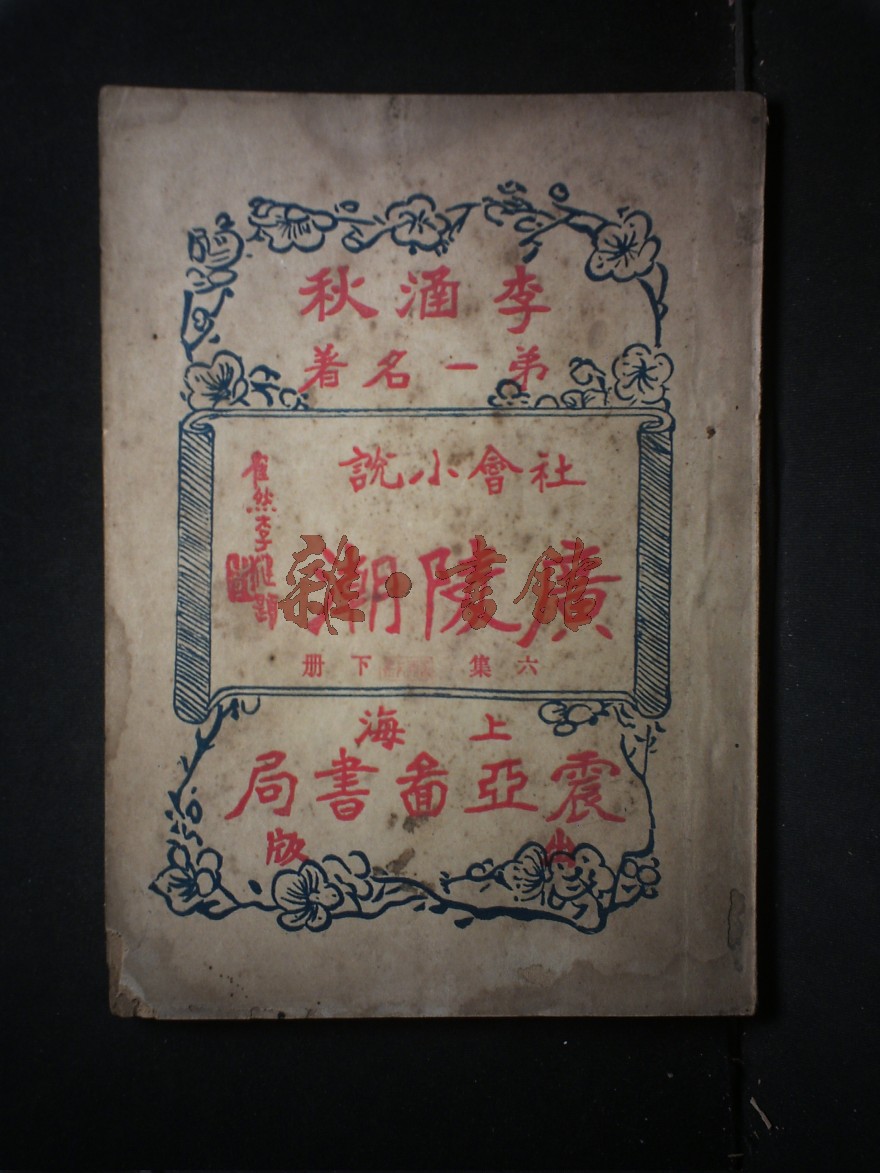 李涵秋
弟一名著
社會小說
廣陵潮
六集 下册
上海
震亞啚書局
出版
雜·書館